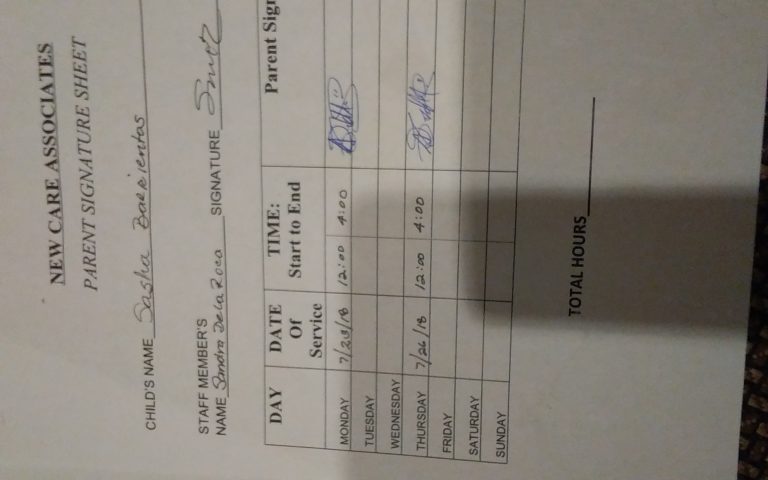 NEW CARE ASSOCIATES
PARENT SIGNATURE SHEET
CHILD'S NAME Sasha Barrientos
STAFF MEMBER'S
NAME Sandra De la Roca SIGNATURE
DAY DATE Of Service TIME: Start to End Parent Sign
MONDAY 7/23/18 12:00 4:00
TUESDAY
WEDNESDAY
THURSDAY 7/26/18 12:00 4:00
FRIDAY
SATURDAY
SUNDAY
TOTAL HOURS